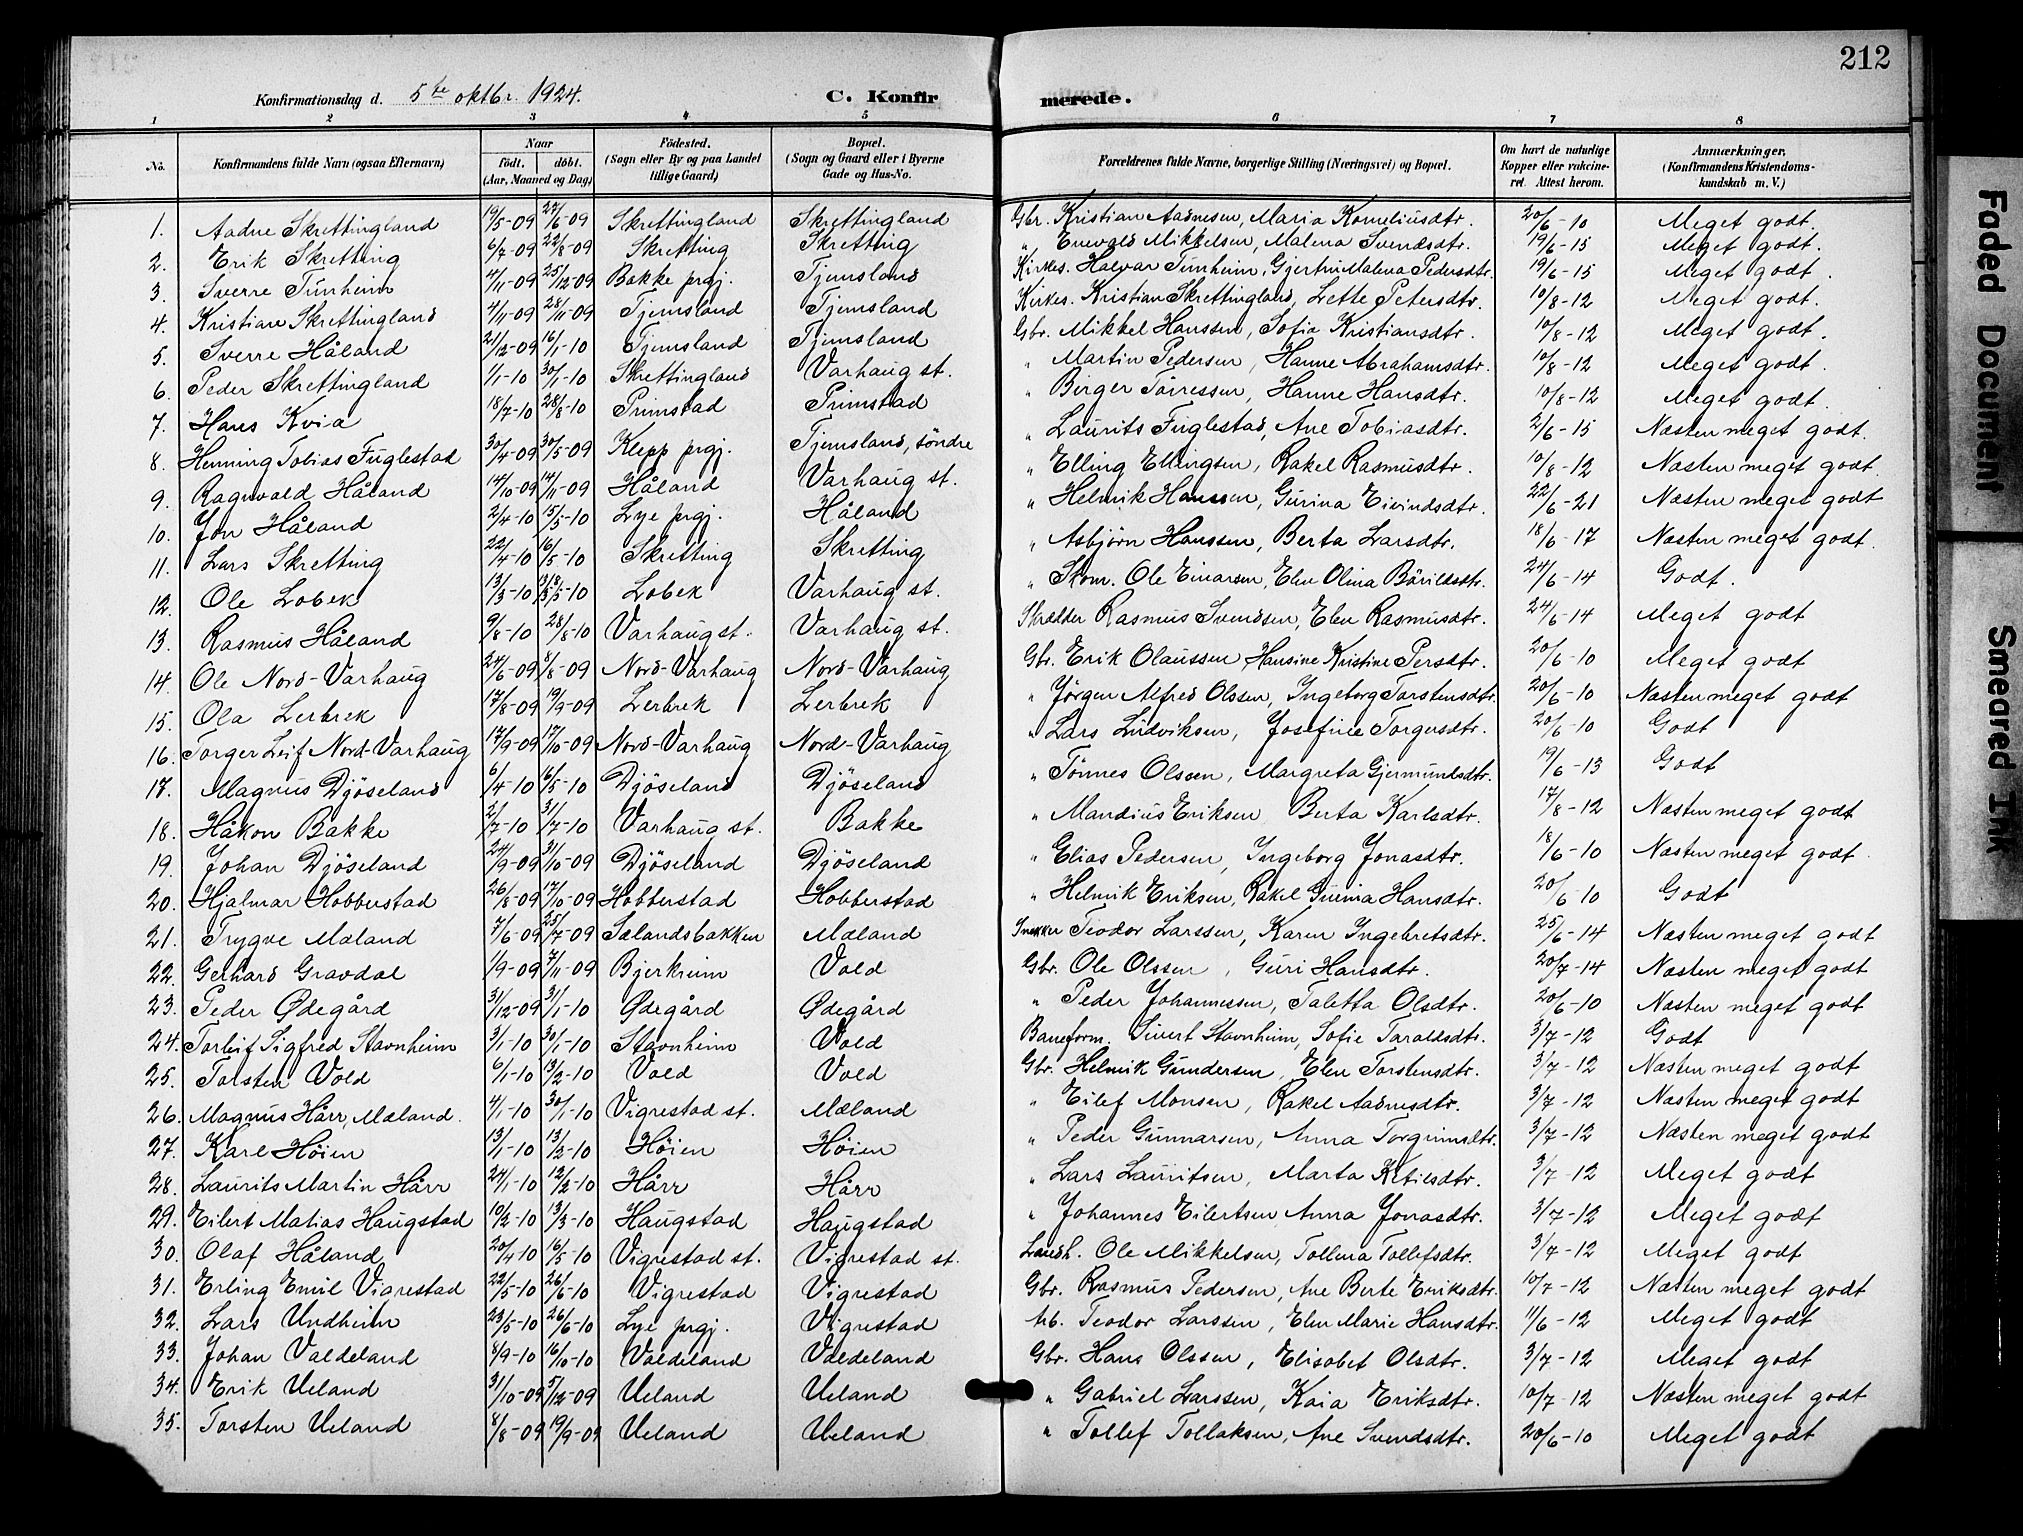 212
Konfirmationsdag d. 5te oktbr. 1924. C. Konfirmerede.
1 2 3 4 5 6 7 8
No. | Konfirmandens fulde Navn (ogsaa Efternavn) | Naar födt. döbt. (Aar, Maaned og Dag) | Födested. (Sogn eller By og paa Landet tillige Gaard) | Bopæl. (Sogn og Gaard eller i Byerne Gade og Hus-No. | Forældrenes fulde Navne, borgerlige Stilling (Næringsvei) og Bopæl. | Om havt de naturlige Kopper eller vakcineret. Attest herom. | Anmærkninger, (Konfirmandens Kristendomskundskab m. V.)
1. Aadne Skrettingland 19/5-09 27/6-09 Skrettingland Skrettingland Gbr. Kristian Aadnesen, Maria Korneliusdtr. 20/6-10 Meget godt.
2. Erik Skretting 6/7-09 22/8-09 Skretting Skretting " Enevald Mikkelsen, Malena Svendsdtr. 19/6-15 Meget godt.
3. Sverre Tunheim 4/11-09 25/12-09 Bakke prgj. Tjemsland Kirkes. Halvar Tunheim, Gjertru Malena Pedersdtr. 19/6-15 Meget godt.
4. Kristian Skrettingland 4/11-09 28/11-09 Tjemsland Tjemsland Kirkes. Kristian Skrettingland, Lette Petersdtr. 10/8-12 Meget godt.
5. Sverre Håland 21/12-09 16/1-10 Tjemsland Tjemsland Gbr. Mikkel Hanssen, Sofia Kristiansdtr. 10/8-12 Meget godt.
6. Peder Skrettingland 1/1-10 30/1-10 Skrettingland Varhaug st. " Martin Pedersen, Hanne Abrahamsdtr. 10/8-12 Meget godt.
7. Hans Kvia 18/7-10 28/8-10 Primstad Primstad " Berger Tøressen, Hanne Hansdtr. 10/8-12 Meget godt.
8. Henning Tobias Fuglestad 30/4-09 30/5-09 Klepp prgj. Tjemsland, söndre " Laurits Fuglestad, Ane Tobiasdtr. 2/6-15 Næsten meget godt.
9. Ragnvald Håland 14/10-09 14/11-09 Håland Varhaug st. " Elling Ellingsen, Rakel Rasmusdtr. 10/8-12 Næsten meget godt.
10. Jon Håland 2/4-10 15/5-10 Lye prgj. Håland " Helmik Hanssen, Gurina Eivindsdtr. 22/6-21 Næsten meget godt
11. Lars Skretting 22/4-10 16/5-10 Skretting Skretting " Asbjørn Hanssen, Berta Larsdtr. 18/6-17 Næsten meget godt.
12. Ole Lobek 13/3-10 /5-10 Lobek Varhaug st. " Skom. Ole Einarsen, Elen Olina Bårildsdtr. 24/6-14 Godt.
13. Rasmus Håland 9/8-10 28/8-10 Varhaug st. Varhaug st. Skrædder Rasmus Svendsen, Elen Rasmusdtr. 24/6-14 Meget godt
14. Ole Nord-Varhaug 24/6-09 8/8-09 Nord-Varhaug Nord-Varhaug Gbr. Erik Olaussen, Hansine Kristine Persdtr. 20/6-10 Meget godt
15. Ola Lerbrek 17/8-09 19/9-09 Lerbrek Lerbrek " Jørgen Alfred Olssen, Ingeborg Torstensdtr. 20/6-10 Næsten meget godt
16. Torger Leif Nord-Varhaug 17/9-09 17/10-09 Nord-Varhaug Nord-Varhaug " Lars Ludviksen, Josefine Torgersdtr. 20/6-10 Godt
17. Magnus Djöseland 6/4-10 16/5-10 Djöseland Djöseland " Tönnes Olssen, Margreta Gjermundsdtr. 19/6-13 Godt
18. Håkon Bakke 2/7-10 31/7-10 Varhaug st. Bakke " Mandius Eriksen Berta Karlsdtr. 17/8-12 Næsten meget godt
19. Johan Djöseland 24/9-09 31/10-09 Djöseland Djöseland " Elias Pedersen, Ingeborg Jonasdtr. 18/6-10 Næsten meget godt.
20. Hjalmar Hobberstad 26/8-09 17/10-09 Hobberstad Hobberstad " Helmik Eriksen, Rakel Gurina Hansdtr. 20/6-10 Godt
21. Trygve Mæland 7/6-09 25/7-09 Sælandsbakken Mæland Snekker Teodor Larssen, Karen Ingebretsdtr. 25/6-14 Næsten meget godt
22. Gerhard Gravdal 1/9-09 7/11-09 Bjerkreim Vold Gbr. Ole Olssen, Guri Hansdtr. 20/7-14 Næsten meget godt
23. Peder Ødegård 31/12-09 31/1-10 Ødegård Ødegård " Peder Johannessen, Taletta Olsdtr. 20/6-10 Næsten meget godt
24. Torleif Sigfred Stavnheim 3/1-10 30/1-10 Stavnheim Vold Baneform. Sivert Stavnheim, Sofie Taraldsdtr. 3/7-12 Godt
25. Torsten Vold 6/1-10 13/2-10 Vold Vold Gbr. Helmik Gundersen, Elen Torstensdtr. 3/7-12 Næsten meget godt
26. Magnus Hårr, Mæland. 4/1-10 30/1-10 Vigrestad st. Mæland " Eilef Monsen, Rakel Aadnesdtr. 3/7-12 Næsten meget godt
27. Karl Höien 13/1-10 13/2-10 Höien Höien " Peder Gunnarsen, Anna Torgrimsdtr. 3/7-12 Næsten meget godt
28. Laurits Martin Hårr 24/1-10 12/2-10 Hårr Hårr " Lars Lauritsen, Marta Ketilsdtr. 3/7-12 Meget godt
29. Eilert Matias Haugstad 10/2-10 13/3-10 Haugstad Haugstad " Johannes Eilertsen Anna Jonasdtr. 3/7-12 Meget godt
30. Olaf Håland 20/4-10 16/5-10 Vigrestad st. Vigrestad st. Landh. Ole Mikkelsen, Tollena Tollefsdtr. 3/7-12 Meget godt
31. Erling Emil Vigrestad 22/5-10 26/6-10 Vigrestad Vigrestad Gbr. Rasmus Pedersen, Ane Berte Eriksdtr. 10/7-12 Næsten meget godt
32. Lars Undheim 23/5-10 26/6-10 Lye prgj. Vigrestad Teodor Larssen, Elen Marie Hansdtr. 11/6-12 Meget godt
33. Johan Valdeland 8/9-10 16/10-10 Valdeland Valdeland Gbr. Hans Olssen, Elisabet Olsdtr. 3/7-12 Meget godt
34. Erik Ueland 31/10-09 5/12-09 Ueland Ueland " Gabriel Larssen, Kaia Eriksdtr. 10/7-12 Næsten meget godt
35. Torsten Ueland 8/8-09 19/9-09 Ueland Ueland " Tollef Tollaksen, Ane Svendsdtr. 20/6-10 Meget godt
Faded Document
Smeared Ink